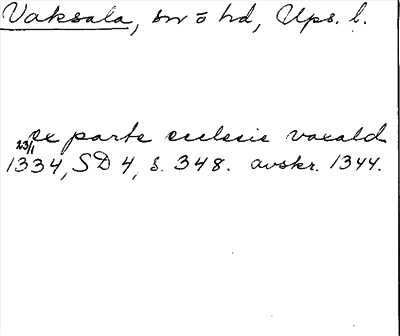 Vaksala, sn o hd, Ups. l.
ex parte ecclesie vaxald
23/1 1334, SD 4, s. 348. avskr. 1344.